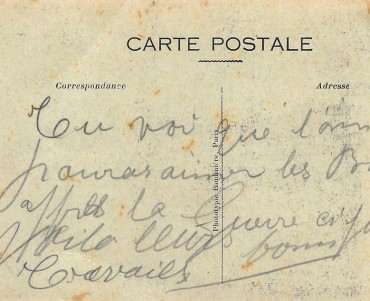 CARTE POSTALE
Correspondance
Adresse
Phototypie Baudinière, Paris
Tu voi que l'on
pouras aimer les B
affres la Guerre
Voila leurs
Travails